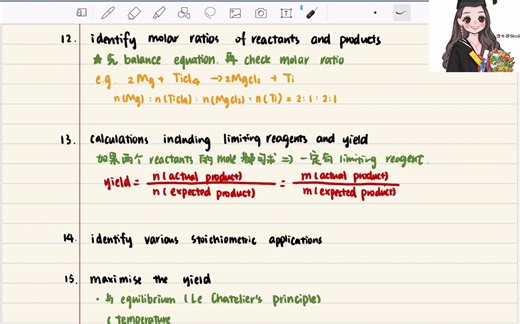 12. identify molar ratios of reactants and products
★ 先 balance equation. 再 check molar ratio
e.g. 2Mg + TiCl4 → 2MgCl2 + Ti
n(Mg) : n(TiCl4) : n(MgCl2) : n(Ti) = 2 : 1 : 2 : 1
13. calculations including limiting reagents and yield
如果两个 reactants 的 mole 都可求 => 一定有 limiting reagent.
yield = n(actual product) / n(expected product) = m(actual product) / m(expected product)
14. identify various stoichiometric applications
15. maximise the yield
• 与 equilibrium (Le Chatelier's principle)
( temperature